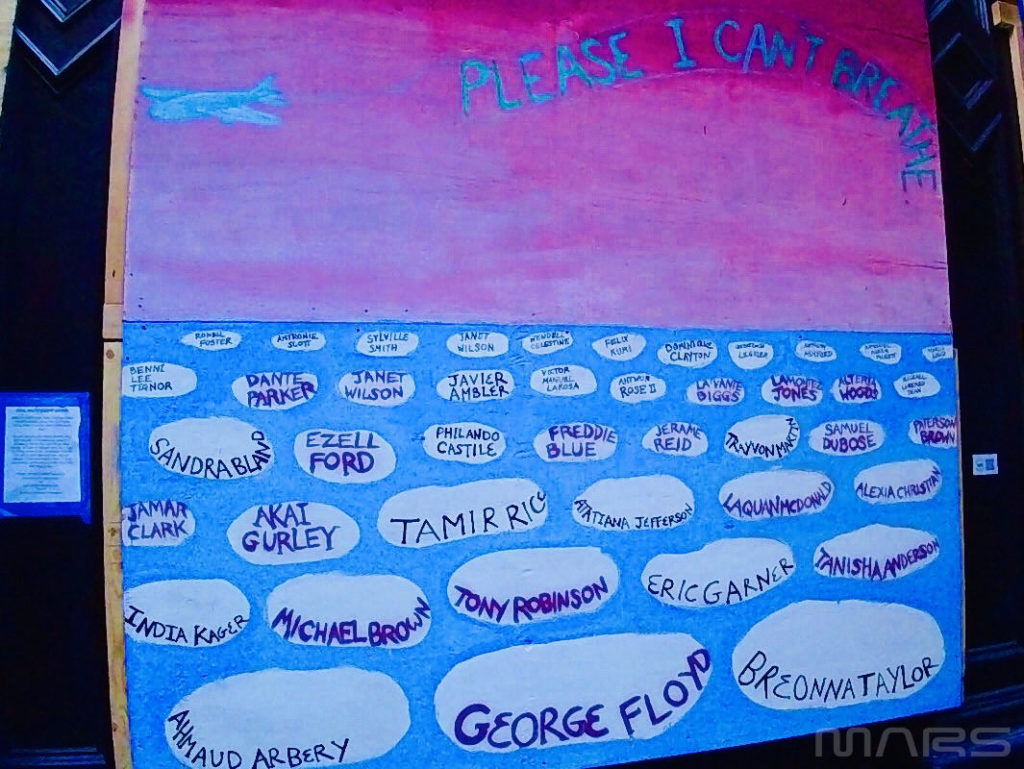 PLEASE I CAN'T BREATHE
RONELL
FOSTER
ANTRONIE
SCOTT
SYLVILLE
SMITH
JANET
WILSON
WENDELL
CELESTINE
FELIX
KUMI
DOMINIQUE
CLAYTON
BENNI
LEE
TIGNOR
DANTE
PARKER
JANET
WILSON
JAVIER
AMBLER
VICTOR
MANUEL
LAROSA
ANTWUN
ROSE II
LA'VANTE
BIGGS
LAMONTEZ
JONES
ALTERIA
WOODS
SANDRA BLAND
EZELL
FORD
PHILANDO
CASTILE
FREDDIE
BLUE
JERAME
REID
TRAYVON MARTIN
SAMUEL
DUBOSE
PATERSON
BROWN
JAMAR
CLARK
AKAI
GURLEY
TAMIR RICE
ATATIANA JEFFERSON
LAQUAN MCDONALD
ALEXIA CHRISTIAN
INDIA KAGER
MICHAEL BROWN
TONY ROBINSON
ERIC GARNER
TANISHA ANDERSON
AHMAUD ARBERY
GEORGE FLOYD
BREONNA TAYLOR
MARS